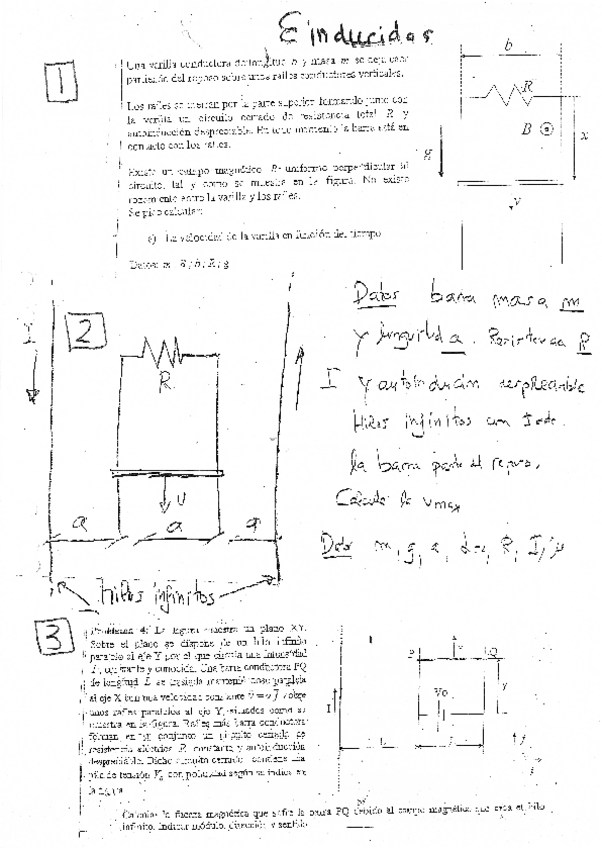 E inducidas
1
Una varilla conductora de longitud b y masa m se deja caer
partiendo del reposo sobre unos raíles conductores verticales.
Los raíles se cierran por la parte superior formando junto con
la varilla un circuito cerrado de resistencia total R y
autoinducción despreciable. En todo momento la barra está en
contacto con los raíles.
Existe un campo magnético B uniforme perpendicular al
circuito, tal y como se muestra en la figura. No existe
rozamiento entre la varilla y los raíles.
Se pide calcular:
a) La velocidad de la varilla en función del tiempo
Datos: m, B, b, R, g
b
R
B
x
g
v
2
I
R
v
a a a
Hilos infinitos
Datos barra masa m
y longitud a. Resistencia R
I y autoinducción despreciable
Hilos infinitos con I
la barra parte del reposo.
Calcular la vmax
Datos m, g, a, R, I,
3
Problema 4: La figura muestra un plano XY.
Sobre el plano se dispone de un hilo infinito
paralelo al eje Y por el que circula una intensidad
I, constante y conocida. Una barra conductora PQ
de longitud L se traslada manteniéndose paralela
al eje X con una velocidad constante v = v j sobre
unos raíles paralelos al eje Y, situados como se
muestra en la figura. Raíles más barra conductora
forman en conjunto un circuito cerrado de
resistencia eléctrica R constante y autoinducción
despreciable. Dicho circuito cerrado contiene una
pila de tensión V0 con polaridad según se indica en
la figura
Calcular la fuerza magnética que sufre la barra PQ debido al campo magnético que crea el hilo
infinito. Indicar módulo, dirección y sentido
P Q
v
Vo
y
I
L